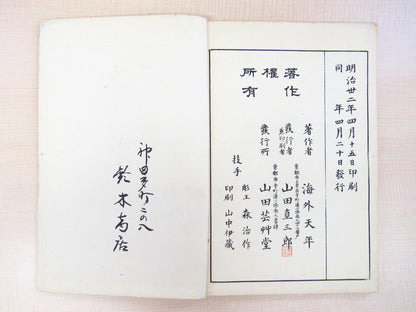 明治卅二年四月十五日印刷
同 年四月二十日發行
著作
權
所有
著作者 海外天年
發行者
兼印刷者
山田直三郎
發行所
山田芸艸堂
技手
彫工 森治作
印刷 山中伊藏
神田多町二ノ八
鈴木商店